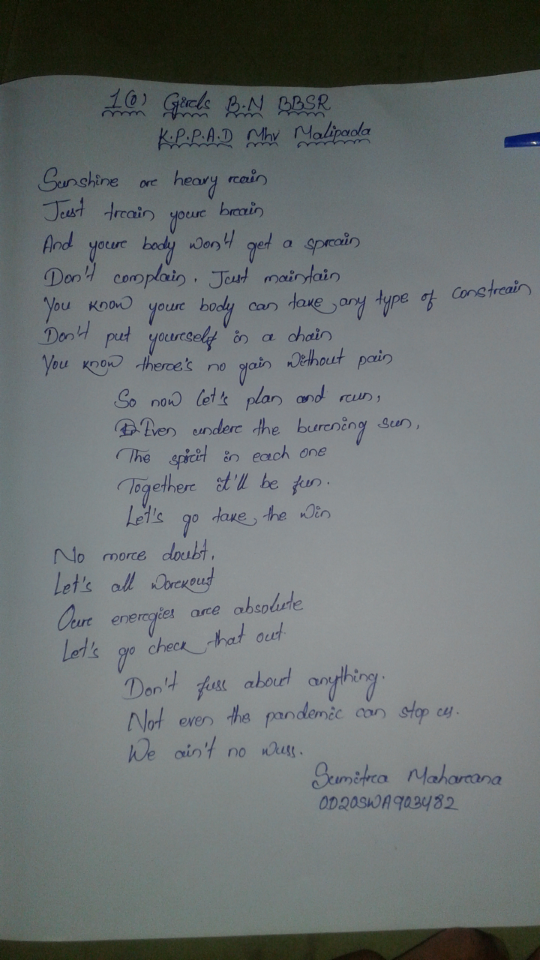 1(O) Girls B.N BBSR
K.P.P.A.D Mhv Malipada
Sunshine or heavy rain
Just train your brain
And your body won't get a sprain
Don't complain. Just maintain
You know your body can take any type of constrain
Don't put yourself in a chain
You know there's no gain without pain
So now let's plan and run,
Even under the burning sun,
The spirit in each one
Together it'll be fun.
Let's go take the win
No more doubt,
Let's all workout
Our energies are absolute
Let's go check that out
Don't fuss about anything.
Not even the pandemic can stop us.
We ain't no wuss.
Sumitra Maharana
OD20SWA903482